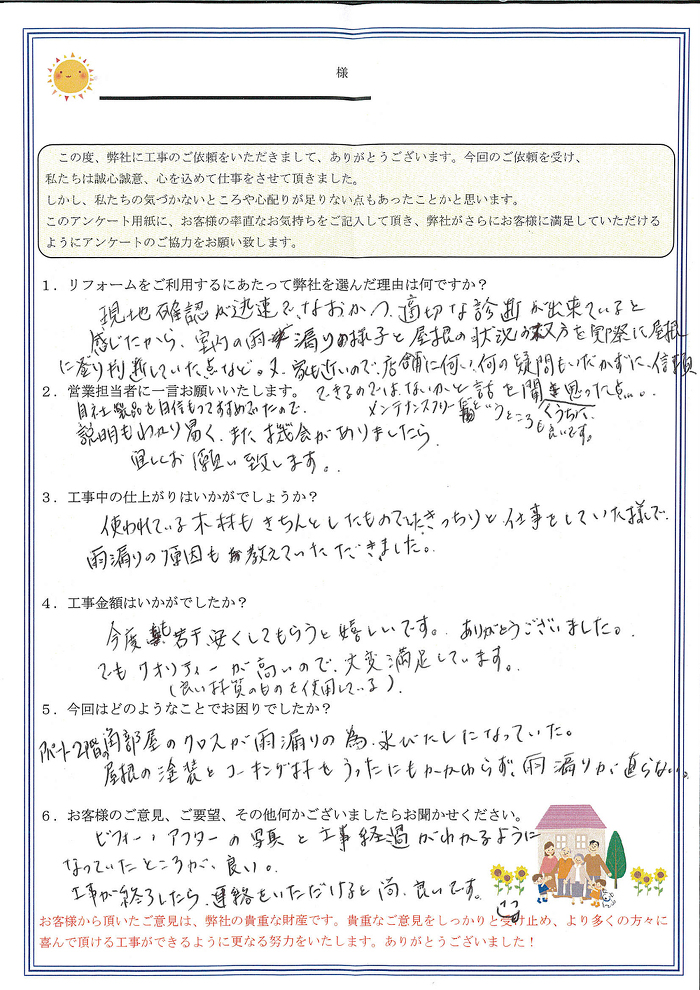 様
この度、弊社に工事のご依頼をいただきまして、ありがとうございます。今回のご依頼を受け、
私たちは誠心誠意、心を込めて仕事をさせて頂きました。
しかし、私たちの気づかないところや心配りが足りない点もあったことかと思います。
このアンケート用紙に、お客様の率直なお気持ちをご記入して頂き、弊社がさらにお客様に満足していただける
ようにアンケートのご協力をお願い致します。
1．リフォームをご利用するにあたって弊社を選んだ理由は何ですか？
現地確認が迅速で、なおかつ、適切な診断が出来ていると
感じたから、室内の雨漏りの様子と屋根の状況の両方を実際に屋根
に登り判断していた点など。又、家も近いので、店舗に伺い、何の疑問もいだかずに、信頼
できるのではないかと話を聞き思った点…。
2．営業担当者に一言お願いいたします。
自社製品を自信もってすすめていたので、
メンテナンスフリーというところも
くうちが、
良いです。
説明もわかり易く、また機会がありましたら、
宜しくお願い致します。
3．工事中の仕上がりはいかがでしょうか？
使われている木材もきちんとしたものでした。きっちりと仕事をしていた様で、
雨漏りの原因も教えていただきました。
4．工事金額はいかがでしたか？
今度若干、安くしてもらうと嬉しいです。ありがとうございました。
でもクオリティーが高いので、大変満足しています。
（良い材質のものを使用している）
5．今回はどのようなことでお困りでしたか？
アパート2階の角部屋のクロスが雨漏りの為、水びたしになっていた。
屋根の塗装とコーキング材をうったにもかかわらず、雨漏りが直らない。
6．お客様のご意見、ご要望、その他何かございましたらお聞かせください。
ビフォー・アフターの写真と工事経過がわかるように
なっていたところが、良い。
工事が終了したら、連絡をいただけると尚、良いです。
お客様から頂いたご意見は、弊社の貴重な財産です。貴重なご意見をしっかりと受け止め、より多くの方々に
喜んで頂ける工事ができるように更なる努力をいたします。ありがとうございました！